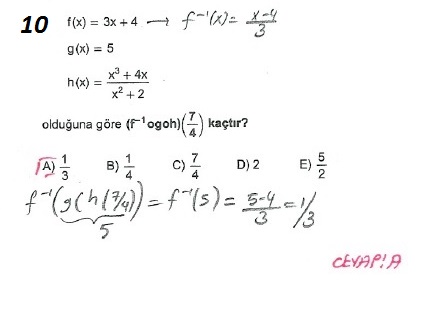 10 f(x) = 3x + 4 → f⁻¹(x) = (x-4)/3
g(x) = 5
h(x) = (x³ + 4x)/(x² + 2)
olduğuna göre (f⁻¹ogoh)(7/4) kaçtır?
A) 1/3 B) 1/4 C) 7/4 D) 2 E) 5/2
f⁻¹(g(h(7/4)) = f⁻¹(5) = (5-4)/3 = 1/3
5
CEVAP! A